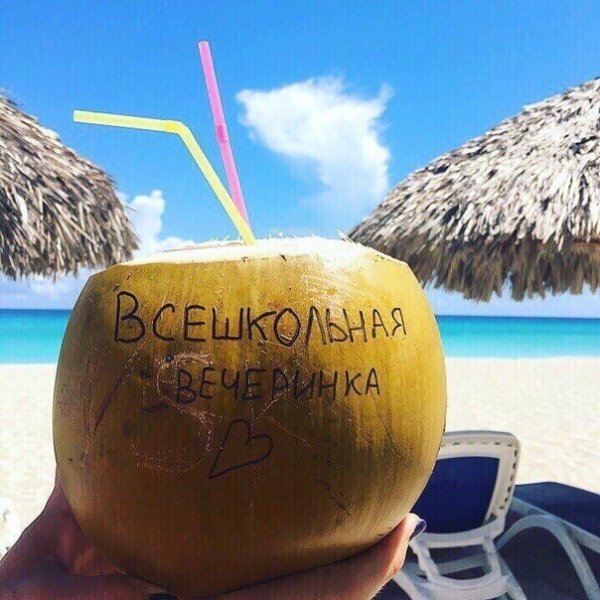 ВСЕШКОЛЬНАЯ
ВЕЧЕРИНКА